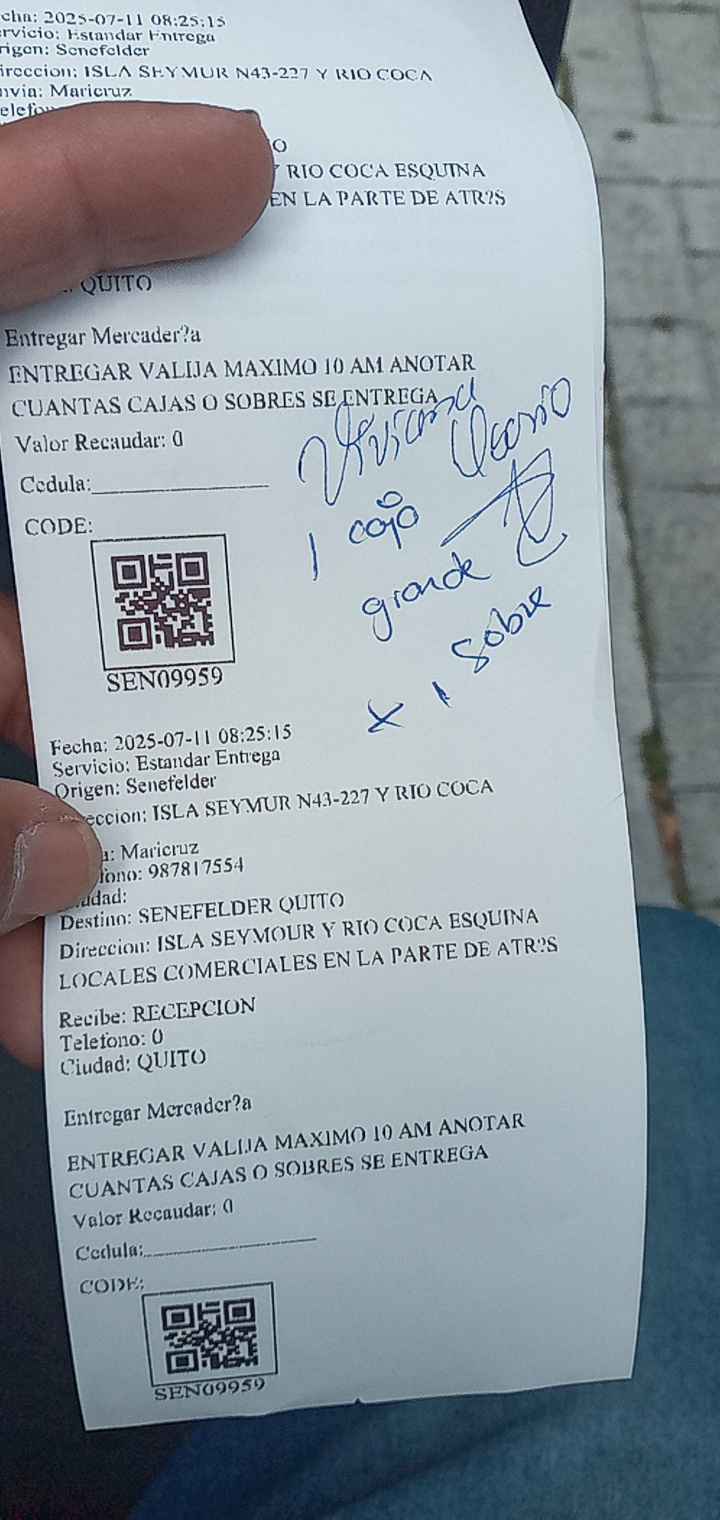 cha: 2025-07-11 08:25:15
rvicio: Estandar Entrega
rigen: Senefelder
ireccion: ISLA SEYMUR N43-227 Y RIO COCA
nvia: Maricruz
elefon
O
Y RIO COCA ESQUINA
EN LA PARTE DE ATR?S
: QUITO
Entregar Mercader?a
ENTREGAR VALIJA MAXIMO 10 AM ANOTAR
CUANTAS CAJAS O SOBRES SE ENTREGA
Valor Recaudar: 0
Cedula:
CODE:
Viviana
1 caja
grande
x 1 sobre
SEN09959
Fecha: 2025-07-11 08:25:15
Servicio: Estandar Entrega
Origen: Senefelder
eccion: ISLA SEYMUR N43-227 Y RIO COCA
a: Maricruz
fono: 987817554
udad:
Destino: SENEFELDER QUITO
Direccion: ISLA SEYMOUR Y RIO COCA ESQUINA
LOCALES COMERCIALES EN LA PARTE DE ATR?S
Recibe: RECEPCION
Telefono: 0
Ciudad: QUITO
Entregar Mercader?a
ENTREGAR VALIJA MAXIMO 10 AM ANOTAR
CUANTAS CAJAS O SOBRES SE ENTREGA
Valor Recaudar: 0
Cedula:
CODE:
SEN09959